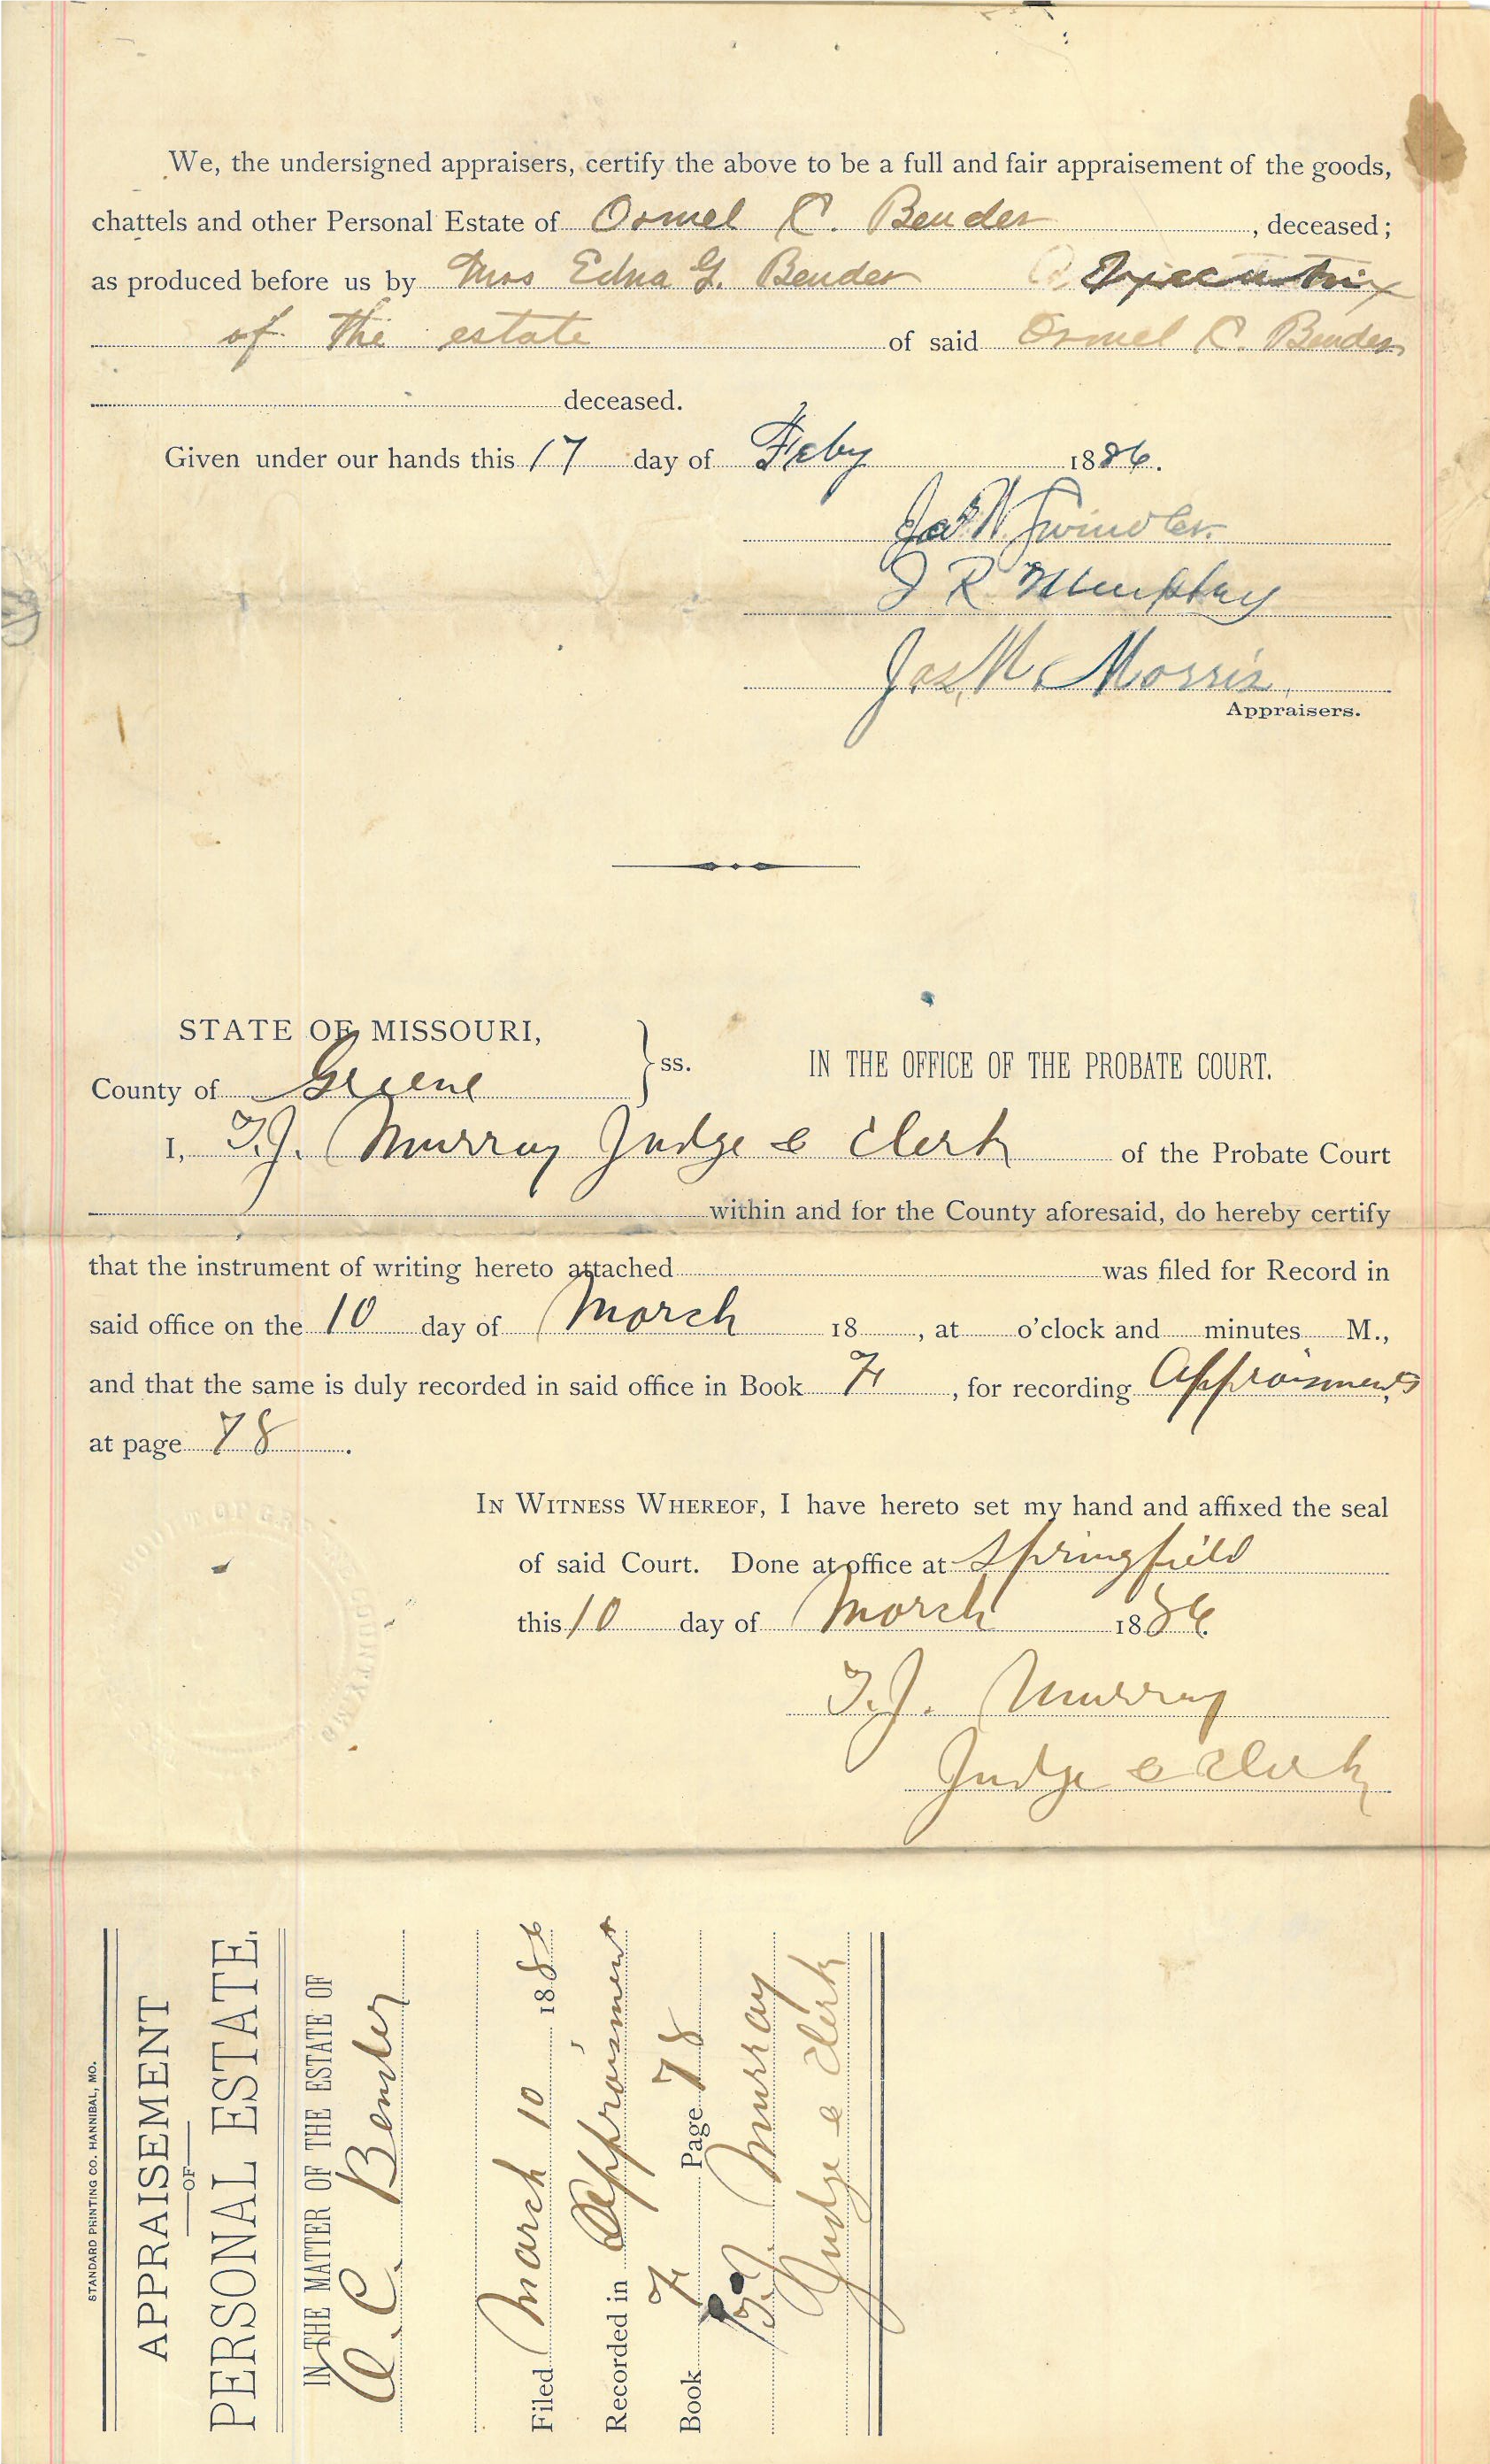 We, the undersigned appraisers, certify the above to be a full and fair appraisement of the goods,
chattels and other Personal Estate of Ormel C. Bender, deceased;
as produced before us by Mrs Edna G. Bender Executrix
of the estate of said Ormel C. Bender
deceased.
Given under our hands this 17 day of Feby 1886.
Jas N. Swindler.
J R Murphy
Jas. M. Morris
Appraisers.
STATE OF MISSOURI,
County of Greene } ss. IN THE OFFICE OF THE PROBATE COURT.
I, T.J. Murray Judge & Clerk of the Probate Court
within and for the County aforesaid, do hereby certify
that the instrument of writing hereto attached was filed for Record in
said office on the 10 day of March 18 , at o'clock and minutes M.,
and that the same is duly recorded in said office in Book F, for recording Appraisments
at page 78.
IN WITNESS WHEREOF, I have hereto set my hand and affixed the seal
of said Court. Done at office at Springfield
this 10 day of March 1886
T.J. Murray
Judge & Clerk
STANDARD PRINTING CO. HANNIBAL, MO.
APPRAISEMENT
OF
PERSONAL ESTATE.
IN THE MATTER OF THE ESTATE OF
O. C. Bender
Filed March 10 1886
Recorded in Appraisment
Book F Page 78
T.J. Murray
Judge & Clerk